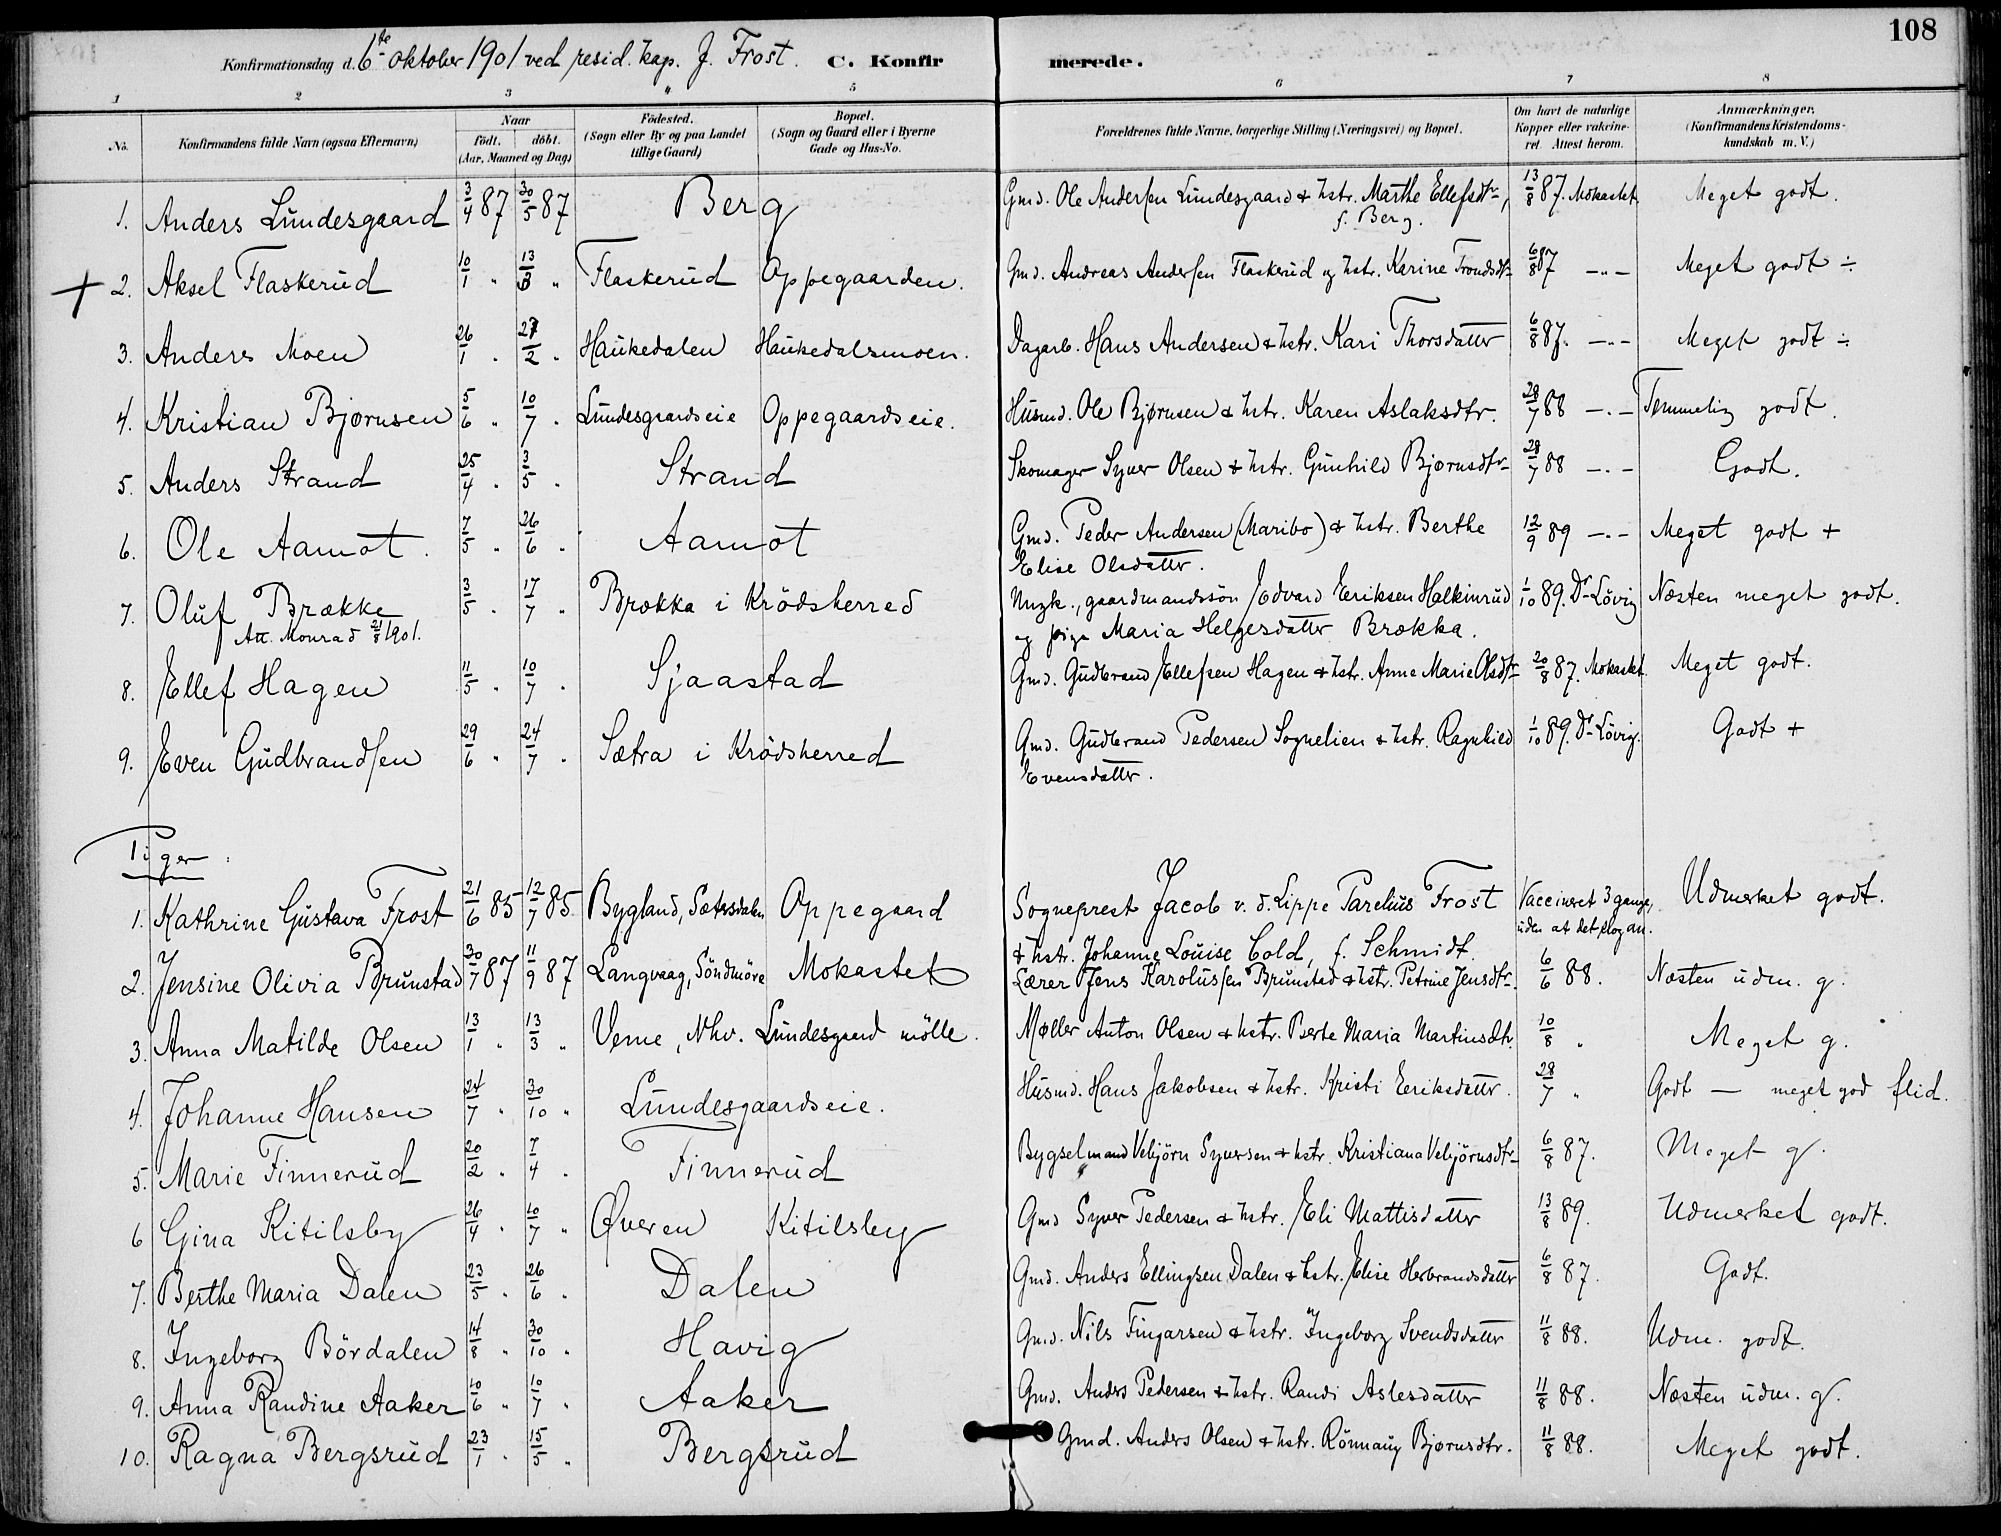 108
Konfirmationsdag d. 6te oktober 1901 ved resid. kap. J. Frost. C. Konfirmerede.
1 2 3 4 5 6 7 8
No. Konfirmandens fulde Navn (ogsaa Efternavn) Naar födt. döbt. (Aar, Maaned og Dag) Födested. (Sogn eller By og paa Landet tillige Gaard) Bopæl. (Sogn og Gaard eller i Byerne Gade og Hus-No. Forældrenes fulde Navne, borgerlige Stilling (Næringsvei) og Bopæl. Om havt de naturlige Kopper eller vakcineret. Attest herom. Anmærkninger. (Konfirmandens Kristendomskundskab m. V.)
1. Anders Lundesgaard 3/4 87 30/5 87 Berg Gmd. Ole Andersen Lundesgaard & hstr. Marthe Ellefsdtr, f. Berg. 13/8 87. Mokastet. Meget godt.
+ 2. Aksel Flaskerud 10/1 " 13/3 " Flaskerud Oppegaarden. Gmd. Andreas Andersen Flaskerud og hstr. Karine Trondsdtr 6/8 87 —"— Meget godt ÷
3. Anders Moen 26/1 " 27/2 " Haukedalen Haukedalsmoen. Dagarb. Hans Andersen & hstr. Kari Thorsdatter 6/8 87. —"— Meget godt ÷
4. Kristian Bjørnsen 5/6 " 10/7 " Lundesgaardseie Oppegaardseie. Husmd. Ole Bjørnsen & hstr. Karen Aslaksdtr. 28/7 88 —"— Temmelig godt.
5. Anders Strand 25/4 " 3/5 " Strand Skomager Syver Olsen & hstr. Gunhild Bjørnsdtr 28/7 88 —"— Godt.
6. Ole Aamot. 7/5 " 26/6 " Aamot Gmd. Peder Andersen (Maribo) & hstr. Berthe Elise Olsdatter. 12/9 89 —"— Meget godt +
7. Oluf Brække 3/5 " 17/7 " Brækka i Krödsherred Ungk., gaardmandssön Edvard Eriksen Halkinrud 1/10 89. Dr Lövig Næsten meget godt.
Att. Monrad 21/8 1901. og pige Maria Helgesdatter Brækka.
8. Ellef Hagen 11/5 " 10/7 " Sjaastad Gmd. Gudbrand Ellefsen Hagen & hstr. Anne Marie Olsdtr 20/8 87. Mokastet. Meget godt.
9. Even Gudbrandsen 29/6 " 24/7 " Sætra i Krödsherred Gmd. Gudbrand Pedersen Sognelien & hstr. Ragnhild Evensdatter. 1/10 89. Dr Lövig. Godt +
Piger:
1. Kathrine Gustava Frost 21/6 85 12/7 85 Bygland, Sætersdalen Oppegaard Sogneprest Jacob v. d. Lippe Parelius Frost Vaccineret 3 gange, uden at det slog an. Udmerket godt.
& hstr. Johanne Louise Cold, f. Schmidt.
2. Jensine Olivia Brunstad 30/7 87 11/9 87 Langvaag, Söndmöre Mokastet Lærer Jens Karolussen Brunstad & hstr. Petrine Jensdtr. 6/6 88. Næsten udm. g.
3. Anna Matilde Olsen 13/1 " 13/3 " Veme, Nhv. Lundesgaard mölle. Møller Anton Olsen & hstr. Berte Maria Martinsdtr. 10/8 " Meget g.
4. Johanne Hansen 24/7 " 30/10 " Lundesgaardseie. Husmd. Hans Jakobsen & hstr. Kristi Eriksdatter. 28/7 " Godt — meget god flid.
5. Marie Finnerud 20/2 " 7/4 " Finnerud Bygselmand Vebjörn Syversen & hstr. Kristiana Vebjörnsdtr 6/8 87. Meget g.
6 Gina Kitilsby 26/4 " 10/7 " Øveren Kitilsby Gmd Syver Pedersen & hstr. Eli Mattisdatter 13/8 89. Udmerket godt.
7. Berthe Maria Dalen 23/5 " 26/6 " Dalen Gmd. Anders Ellingsen Dalen & hstr. Elise Herbrandsdatter 6/8 87. Godt.
8. Ingeborg Bördalen 14/8 " 30/10 " Havig Gmd. Nils Fingarsen & hstr. Ingeborg Svendsdatter 11/8 88. Udm. godt.
9. Anna Randine Aaker 10/6 " 10/7 " Aaker Gmd. Anders Pedersen & hstr. Randi Aslesdatter 11/8 88. Næsten udm. g.
10. Ragna Bergsrud 23/1 " 15/5 " Bergsrud Gmd. Anders Olsen & hstr. Rönnaug Bjørnsdtr. 11/8 88. Meget godt.